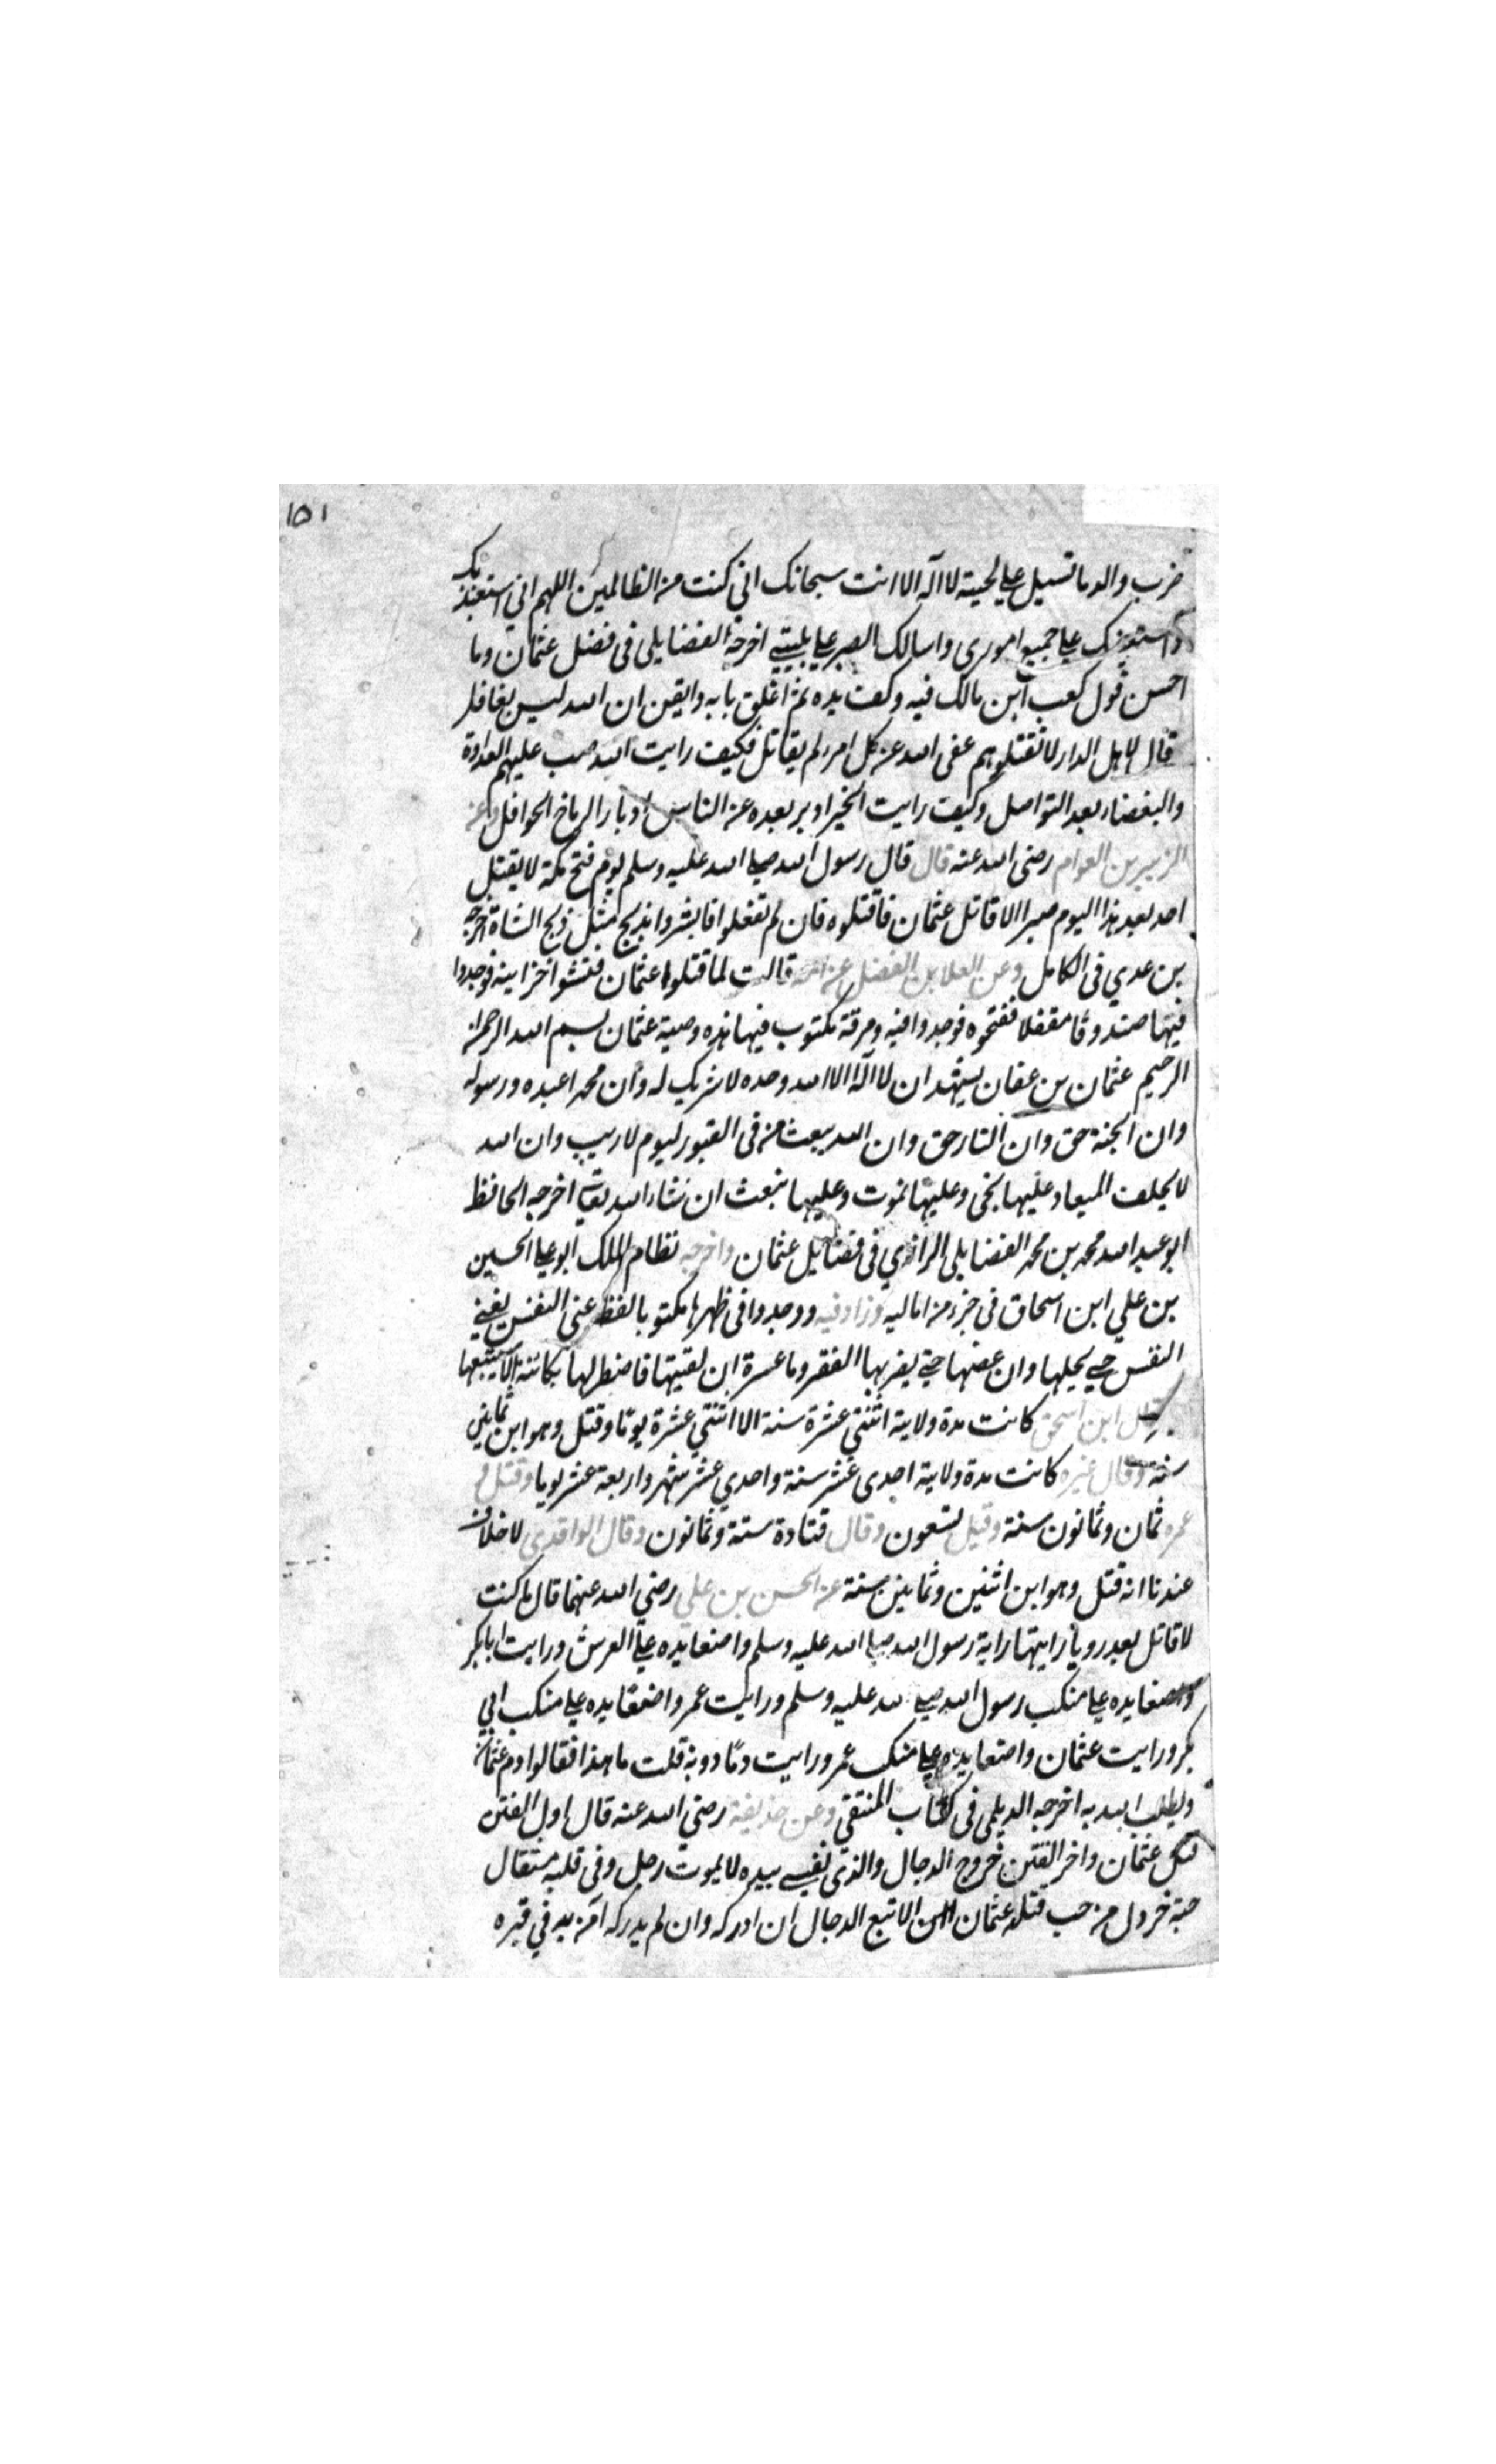 ١٥١
ضرب والدما تسيل علي لحيته لا اله الا انت سبحانك اني كنت من الظالمين اللهم اني استعيذ بك
واستعينك علي جميع اموري واسالك الصبر علي بليتي اخرجه الفضايلي في فضل عثمان وما
احسن قول كعب ابن مالك فيه وكف يده ثم اغلق بابه وايقن ان الله ليس بغافل
قال لاهل الدار لا تقتلوهم عفي الله عن كل امر لم يقاتل فكيف رايت الله صب عليهم العداوة
والبغضاء بعد التواصل وكيف رايت الخير ادبر بعده عن الناس ادبار الرياح الحوافل وعن
الزبير بن العوام رضي الله عنه قال قال رسول الله صلي الله عليه وسلم يوم فتح مكة لا يقتل
احد بعد هذا اليوم صبرا الا قاتل عثمان فاقتلوه فان لم تفعلوا فابشروا بذبح مثل ذبح الشاة اخرجه
بن عدي في الكامل وعن العلا بن الفضل عن امه قالت لما قتلوا عثمان فتشوا خزاينه فوجدوا
فيها صندوقا مقفلا ففتحوه فوجدوا فيه ورقة مكتوب فيها هذه وصية عثمان بسم الله الرحمن
الرحيم عثمان بن عفان يشهد ان لا اله الا الله وحده لا شريك له وان محمدا عبده ورسوله
وان الجنة حق وان النار حق وان الله يبعث من في القبور ليوم لا ريب وان الله
لا يخلف الميعاد عليها نحي وعليها نموت وعليها نبعث ان شاء الله تعالي اخرجه الحافظ
ابو عبد الله محمد بن محمد الفضايلي الرازي في فضايل عثمان واخرجه نظام الملك ابو علي الحسين
بن علي ابن اسحاق في جزء من اماليه وزاد فيه ووجدوا في ظهرها مكتوبا لفظ غني النفس يغني
النفس حتي يجلها وان عضها حتي يضربها الفقر وما عسرة ان لقيتها فاصطبر لها بكائنة الا سيتبعها
قال ابن اسحق كانت مدة ولايته اثنتي عشرة سنة الا اثنتي عشرة يوما وقتل وهو ابن ثماني
سنه وقال غيره كانت مدة ولايته احدي عشر سنة واحدي عشر شهر واربعة عشر يوما وقتل في
عمره ثمان وثمانون سنة وقيل تسعون وقال قتادة ستة وثمانون وقال الواقدي لا خلاف
عندنا انه قتل وهو ابن اثنين وثمانين سنة عن الحسن بن علي رضي الله عنهما قال ما كنت
لا قاتل بعد رويا رايتها راية رسول الله صلي الله عليه وسلم واضعا يده علي العرش ورايت ابا بكر
واضعا يده علي منكب رسول الله صلي الله عليه وسلم ورايت عمر واضعا يده علي منكب ابي
بكر ورايت عثمان واضعا يده علي منكب عمر ورايت دما دونه قلت ما هذا فقالوا دم عثمان
ويطلب الله به اخرجه الديلمي في كتاب المنتقي وعن حذيفة رضي الله عنه قال اول الفتن
قتل عثمان واخر الفتن خروج الدجال والذي نفسي بيده لا يموت رجل وفي قلبه مثقال
حبة خردل من حب قتلة عثمان الا تبع الدجال ان ادركه وان لم يدركه امن به في قبره